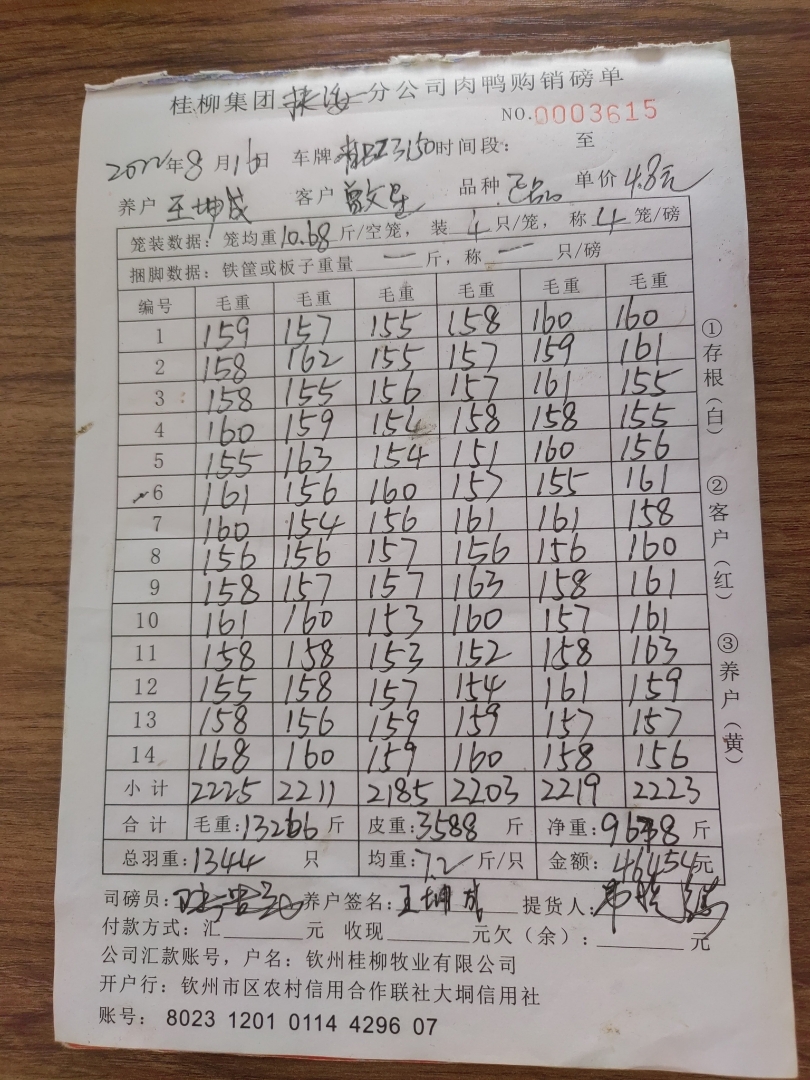 桂柳集团 分公司肉鸭购销磅单
NO.0003615
2022年8月16日 车牌 3150时间段： 至
养户 王坤成 客户 曾文星 品种 单价 4.8元
笼装数据：笼均重10.68斤/空笼，装4只/笼，称4笼/磅
捆脚数据：铁筐或板子重量一斤，称一只/磅
编号 毛重 毛重 毛重 毛重 毛重 毛重
1 159 157 155 158 160 160
2 158 162 155 157 159 161
3 158 155 156 157 161 155
4 160 159 154 158 158 155
5 155 163 154 151 160 156
6 161 156 160 157 155 161
7 160 154 156 161 161 158
8 156 156 157 156 156 160
9 158 157 157 163 158 161
10 161 160 153 160 157 161
11 158 158 153 152 158 163
12 155 158 157 154 161 159
13 158 156 159 159 157 157
14 168 160 159 160 158 156
小计 2225 2211 2185 2203 2219 2223
合计 毛重：13266斤 皮重：3588斤 净重：9678斤
总羽重：1344只 均重：7.2斤/只 金额：46454元
司磅员： 养户签名：王坤成 提货人：
付款方式：汇 元 收现 元欠（余）： 元
公司汇款账号，户名：钦州桂柳牧业有限公司
开户行：钦州市区农村信用合作联社大垌信用社
账号：8023 1201 0114 4296 07
①存根（白） ②客户（红） ③养户（黄）